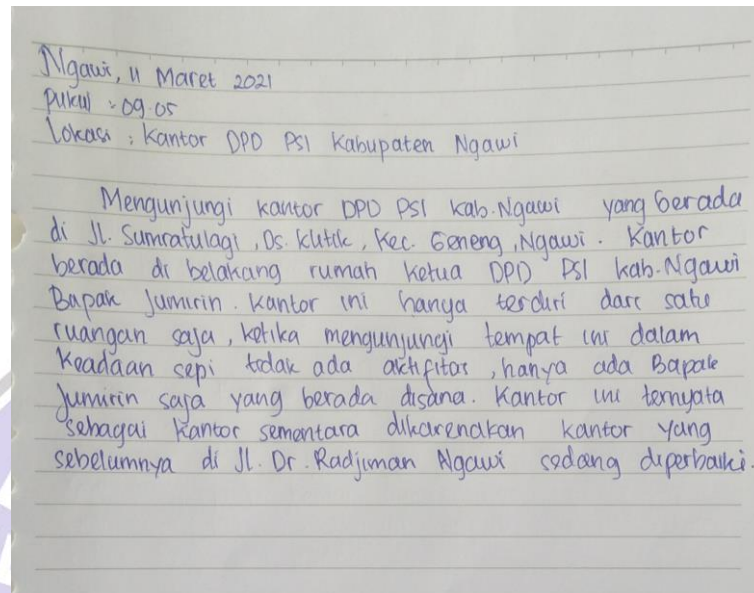 Ngawi, 11 Maret 2021
Pukul : 09.05
Lokasi : Kantor DPD PSI Kabupaten Ngawi
Mengunjungi kantor DPD PSI kab.Ngawi yang berada
di Jl. Sumratulagi, Ds. Klitik, Kec. Geneng, Ngawi. Kantor
berada di belakang rumah ketua DPD PSI kab.Ngawi
Bapak Jumirin. Kantor ini hanya terduri dari satu
ruangan saja, ketika mengunjungi tempat ini dalam
keadaan sepi tidak ada aktifitas, hanya ada Bapak
Jumirin saja yang berada disana. Kantor ini ternyata
sebagai kantor sementara dikarenakan kantor yang
sebelumnya di Jl. Dr. Radjiman Ngawi sedang diperbaiki.